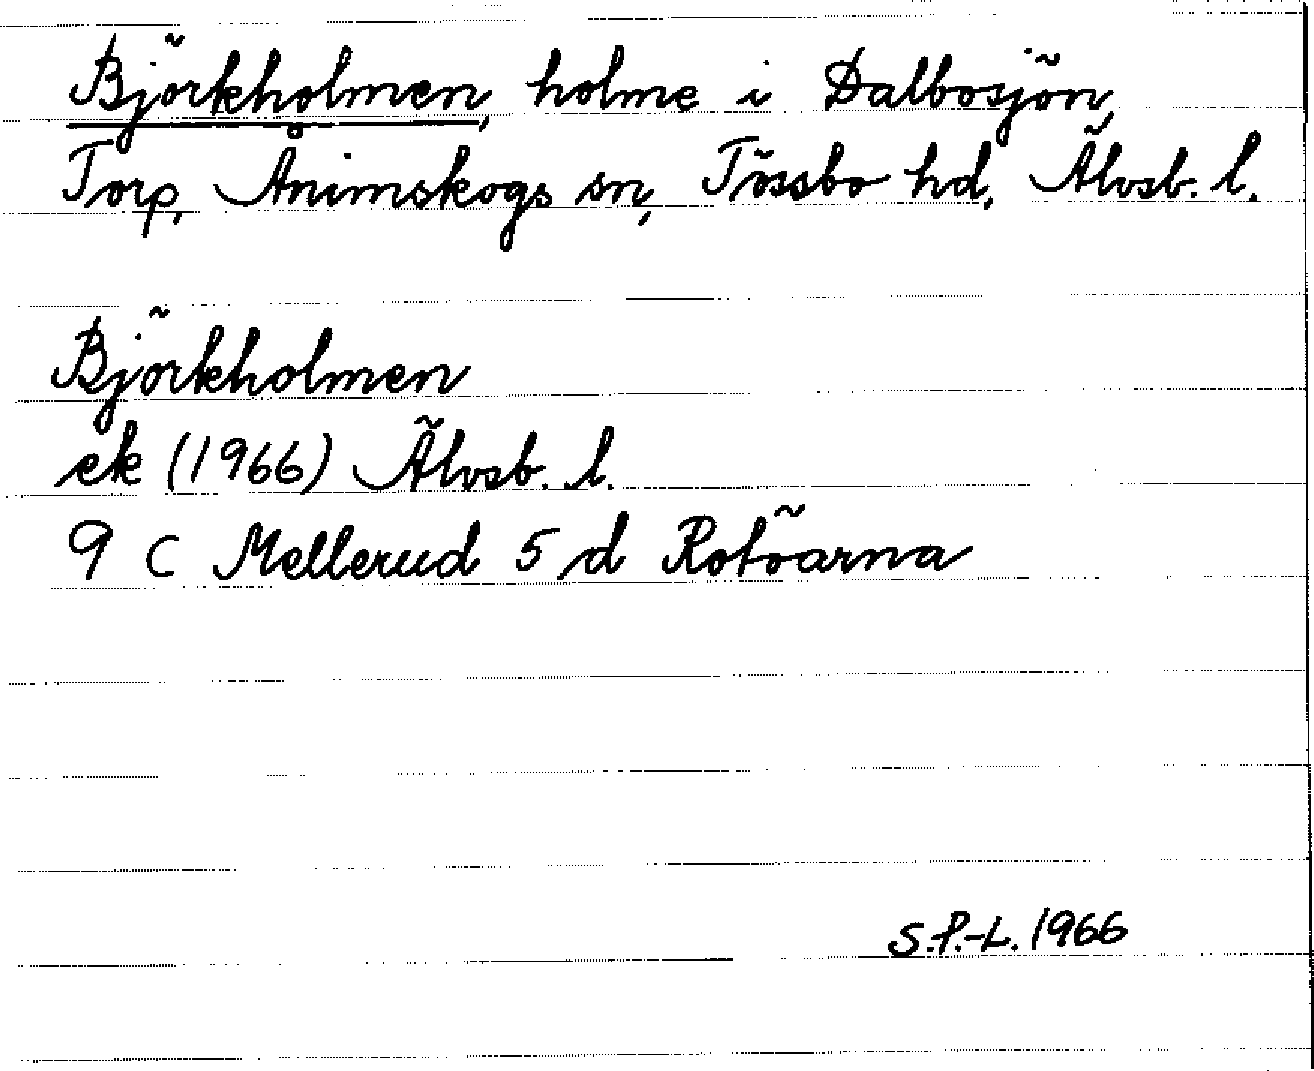 Björkholmen, holme i Dalbosjön,
Torp, Ånimskogs sn, Tössbo hd, Älvsb. l.
Björkholmen
ek (1966) Älvsb. l.
9 C Mellerud 5 d Rotöarna
S.P.-L. 1966